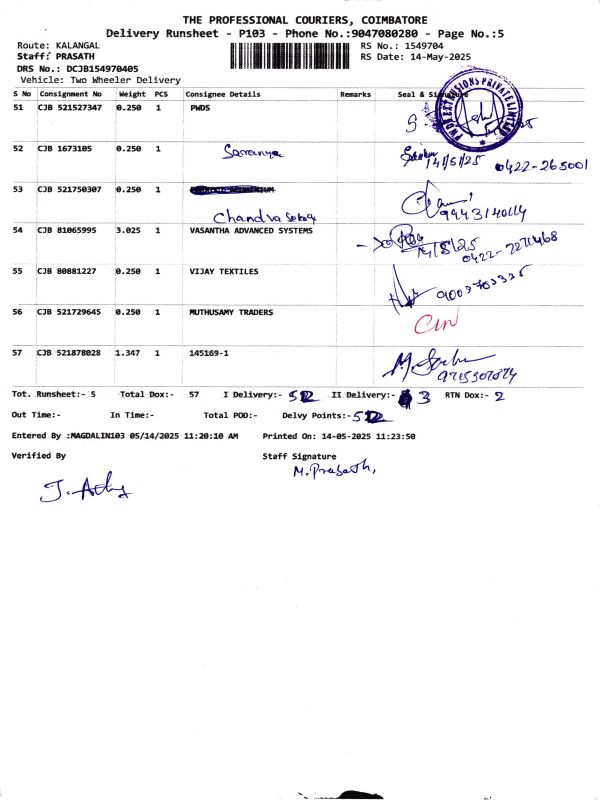 THE PROFESSIONAL COURIERS, COIMBATORE
Delivery Runsheet - P103 - Phone No.:9047080280 - Page No.:5
Route: KALANGAL RS No.: 1549704
Staff: PRASATH RS Date: 14-May-2025
DRS No.: DCJB154970405
Vehicle: Two Wheeler Delivery
S No Consignment No Weight PCS Consignee Details Remarks Seal & Signature
51 CJB 521527347 0.250 1 PWDS
52 CJB 1673105 0.250 1 Saranya 14/5/25 0422-265001
53 CJB 521750307 0.250 1
Chandra Sekar
54 CJB 81065995 3.025 1 VASANTHA ADVANCED SYSTEMS
55 CJB 80881227 0.250 1 VIJAY TEXTILES 9003703335
56 CJB 521729645 0.250 1 MUTHUSAMY TRADERS
57 CJB 521878028 1.347 1 145169-1
Tot. Runsheet:- 5 Total Dox:- 57 I Delivery:- 52 II Delivery:- 3 RTN Dox:- 2
Out Time:- In Time:- Total POD:- Delvy Points:- 52
Entered By :MAGDALIN103 05/14/2025 11:20:10 AM Printed On: 14-05-2025 11:23:50
Verified By Staff Signature
M. Prasath,